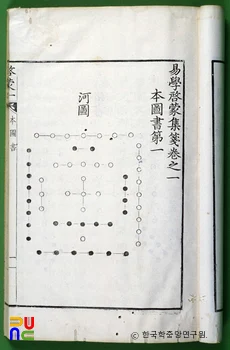 易學啓蒙集箋卷之一
本圖書第一
河圖
本圖書
ⓒ 한국학중앙연구원.